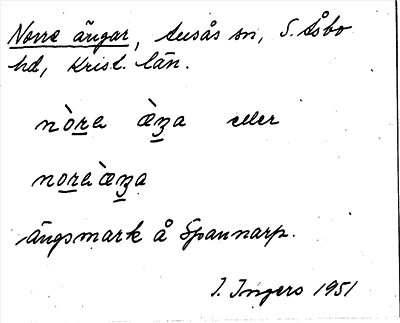 Norre ängar, Ausås sn, S. Åsbo
hd, Krist. län.
nòre æ̀ŋa eller
noreæ̀ŋa
ängsmark å Spannarp.
I. Ingers 1951